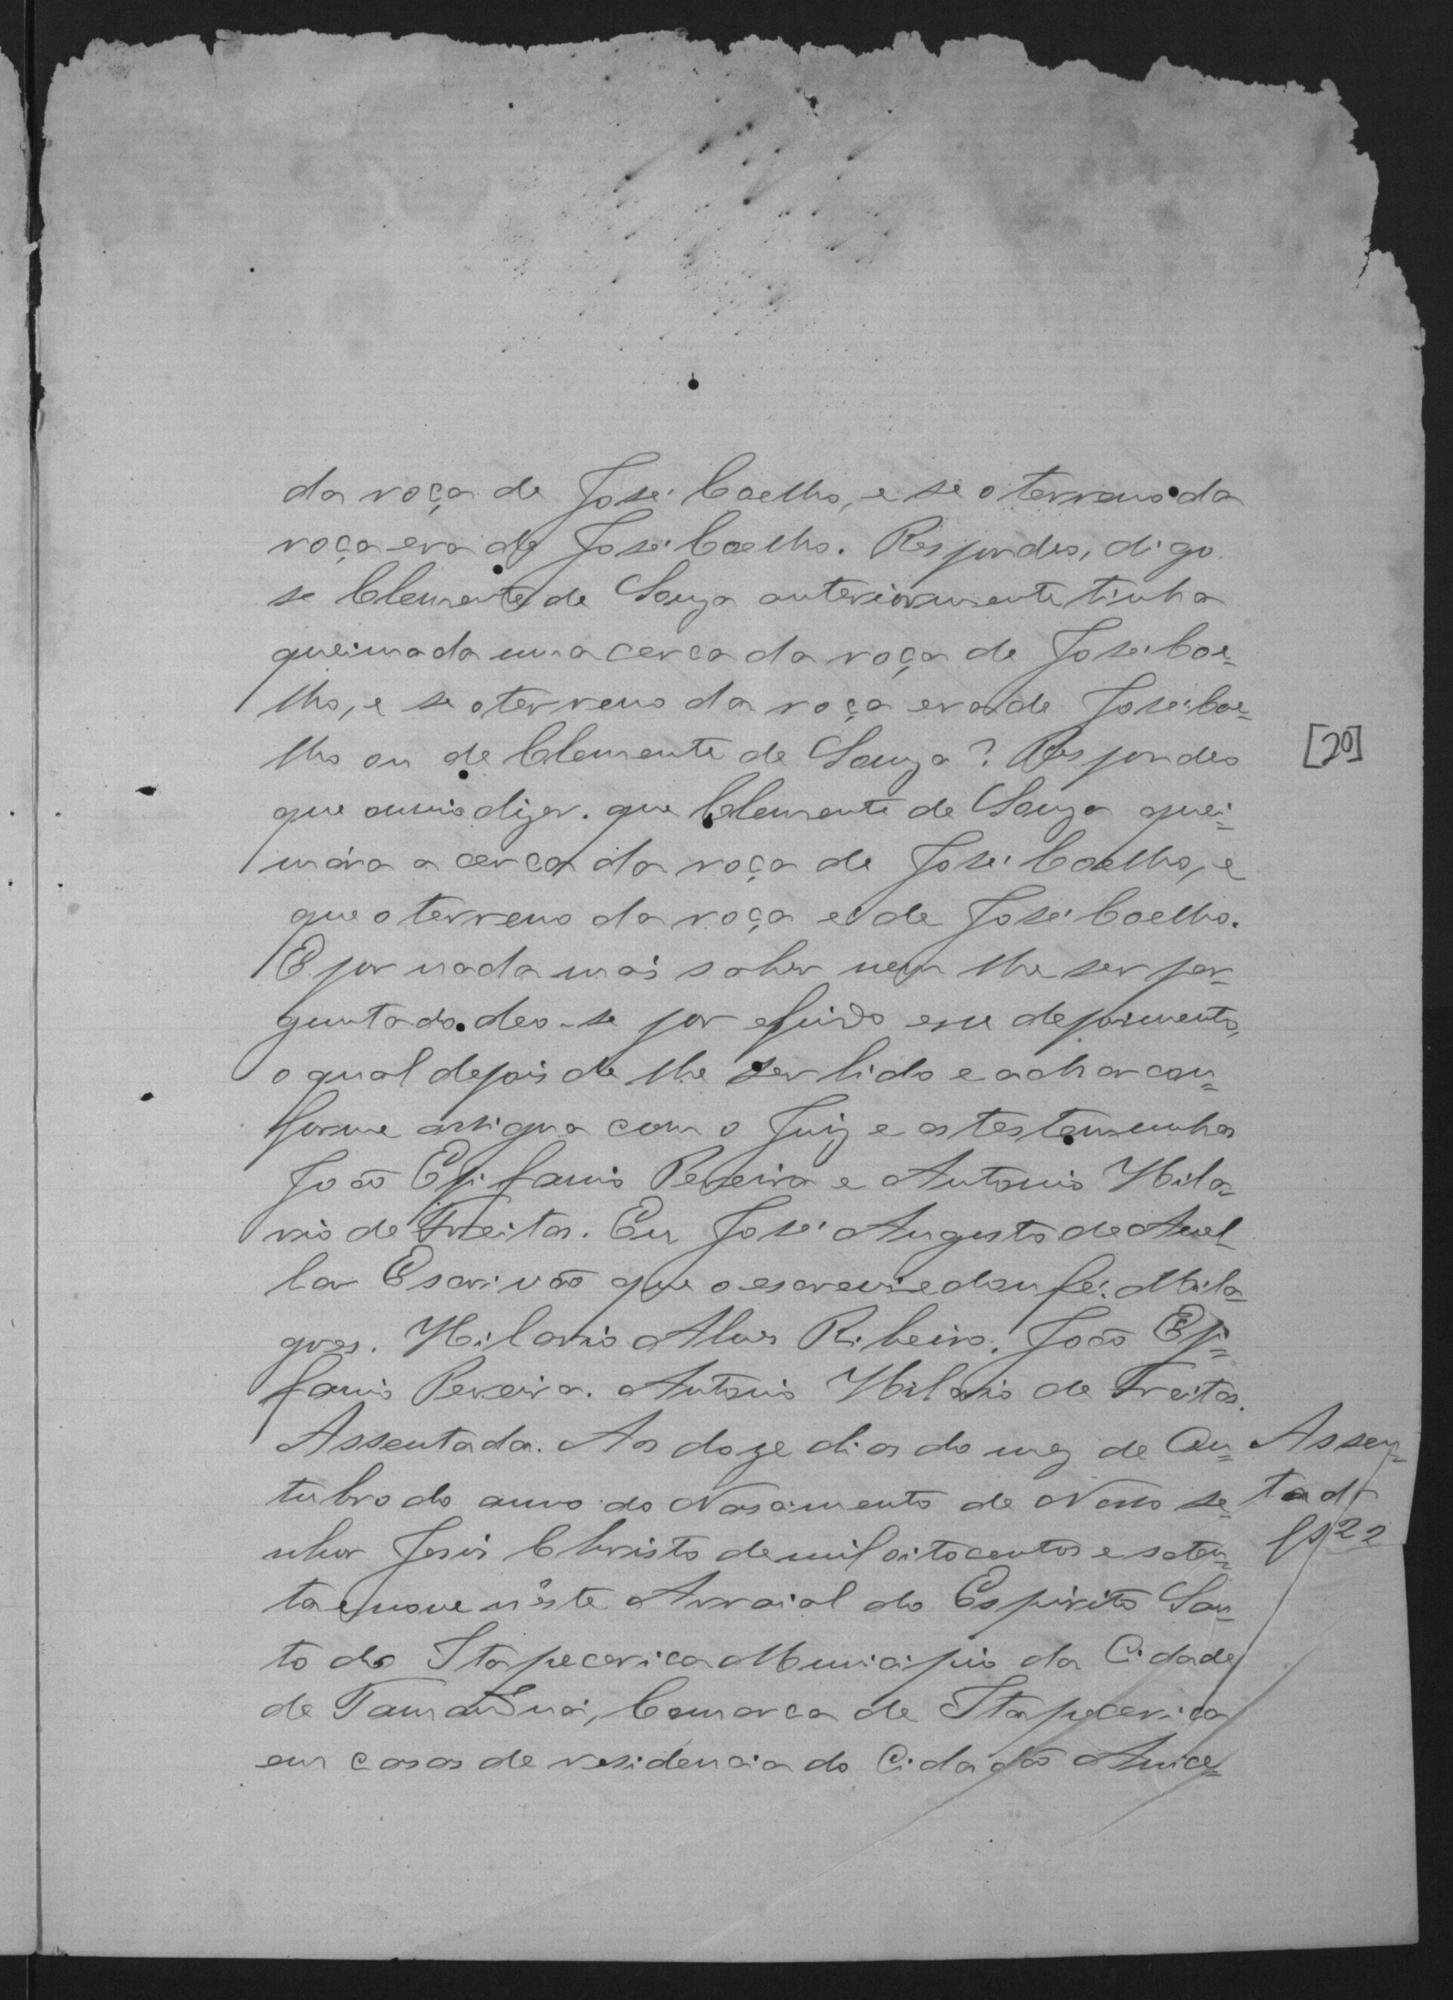 da roça de José Coelho, e se o terreno da
roça era de José Coelho. Respondeo, digo
se Clemente de Souza anteriormente tinha
queimada uma cerca da roça de José Coe=
lho, e se o terreno da roça era de José Coe=
lho ou de Clemente de Souza? Respondeo
[20]
que ouvio dizer. que Clemente de Souza quei=
mára a cerca da roça de José Coelho, e
que o terreno da roça é de José Coelho.
E por nada mais saber nem lhe ser per=
guntado. deo-se por findo esse depoimento,
o qual depois de lhe ser lido e achar con=
forme assigna com o Juiz e as testemunhas
João Epifanio Pereira e Antonio Hila=
rio de Freitas. Eu José Augusto de Avel=
lar Escrivão que o escrevi e dou fé. Mila=
gres. Hilario Alves Ribeiro. João Epi=
fanio Pereira. Antonio Hilario de Freitas.
Assentada. Aos doze dias do mez de Ou=
tubro do anno do Nascimento de Nosso Se=
nhor Jesus Christo de mil oitocentos e seten=
ta e nove n'este Arraial do Espirito San=
to do Itapecerica Municipio da Cidade
de Tamanduá, Comarca de Itapecerica
em casas de residencia do Cidadão Anice=
Assen=
tada
fs 22